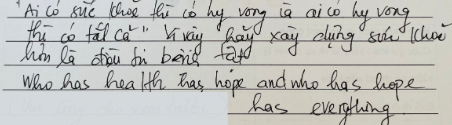 "Ai có sức khoẻ thì có hy vọng là ai có hy vọng
thì có tất cả" Vì vậy hãy xây dựng sức khoẻ
hơn là điều
Who has health has hope and who has hope
has everything